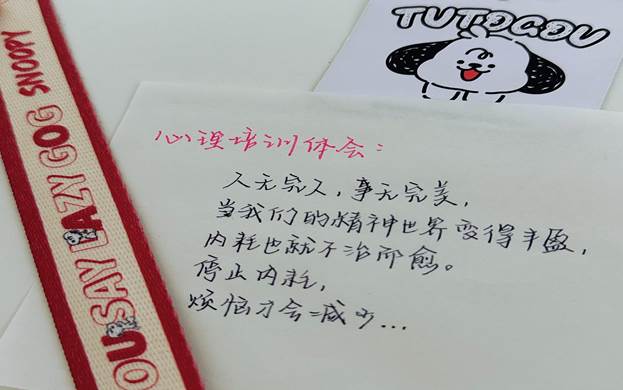 TUTOGOU
SNOOPY
OUSAY LAZY GOG
心理培训体会：
人无完人，事无完美，
当我们的精神世界变得丰盈，
内耗也就不治而愈。
停止内耗，
烦恼才会减少...